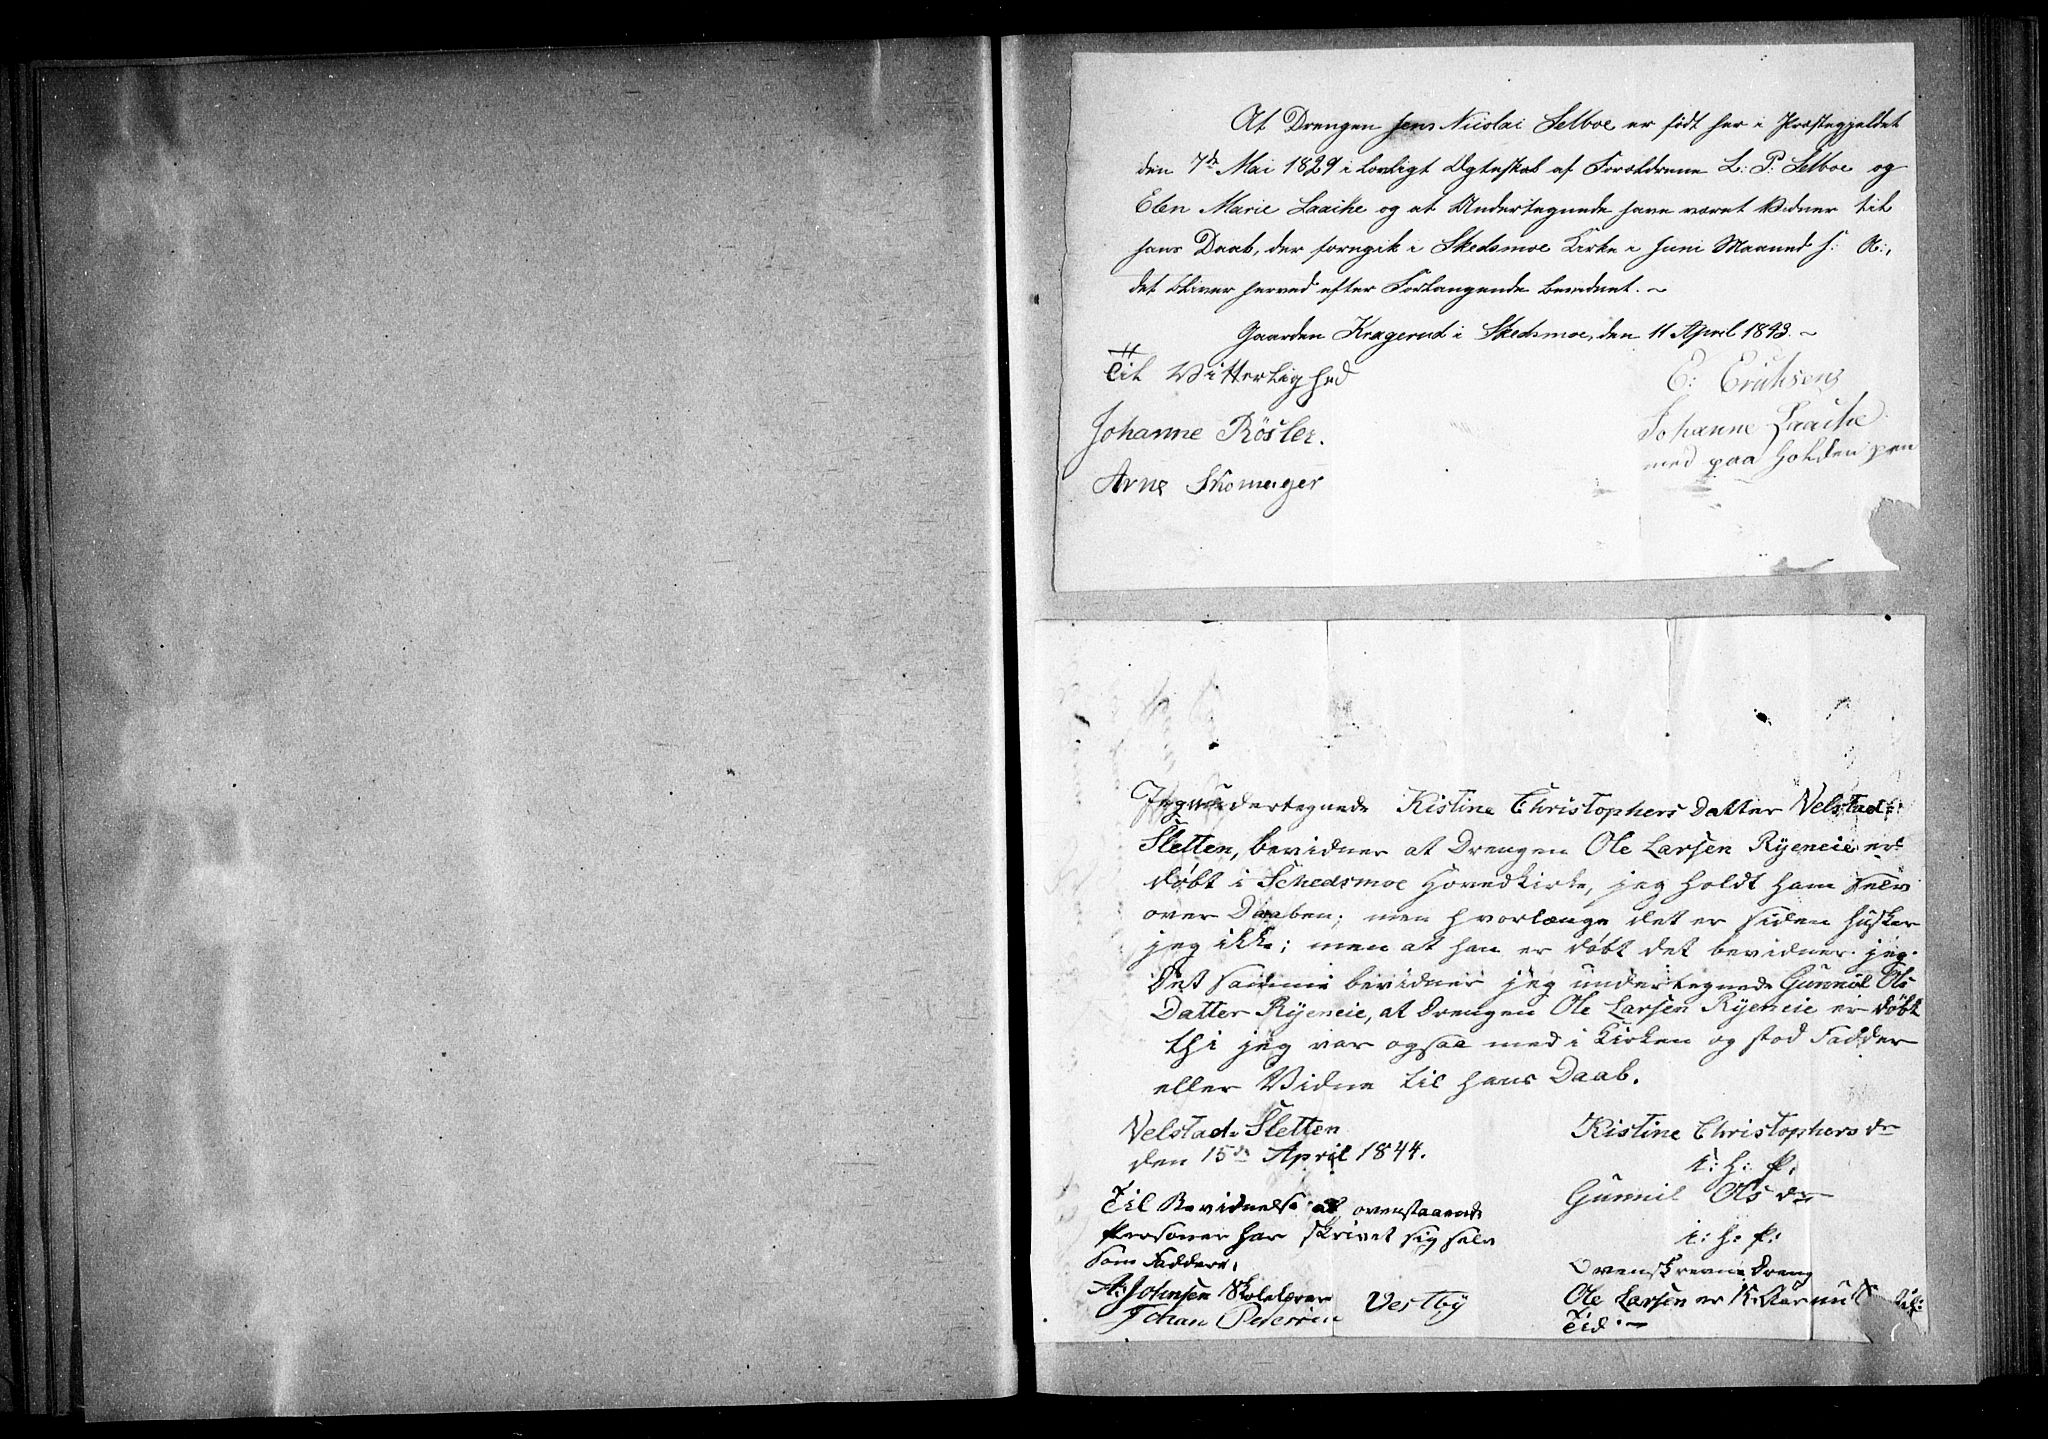 At Drengen Jens Nicolai Selboe er født her i Præstegjeldet
den 7de Mai 1829 i lovligt Ægteskab af Forældrene L: P: Selboe og
Elen Marie Laache og at Undertegnede have været Vidner til
hans Daab, der foregik i Skedsmoe Kirke i Juni Maaned s: A:,
det bliver herved efter Forlangende bevidnet. ~
Gaarden Kragerud i Skedsmoe, den 11 April 1843. ~
Til Vitterlighed
E: Erichsen
Johanne Røsler.
Johanne Laache
med paa holden pen
Arne Skomager
Jeg undertegnede Kistine Christophers Datter Velstad-
Sletten, bevidner at Drengen Ole Larsen Ryeneie er
døbt i Schedsmoe Hovedkirke, jeg holdt ham selv
over Daaben; men hvorlænge det er siden husker
jeg ikke; men at han er døbt det bevidner jeg.
Det samme bevidner jeg undertegnede Gunnil Ols
Datter Ryeneie, at Drengen Ole Larsen Ryeneie er døbt
thi jeg var ogsaa med i Kirken og stod Fadder
eller Vidne til hans Daab.
Velstad-Sletten
den 15de April 1844.
Kistine Christophers dr
i: h: P:
Gunnil Ols dr
i: h: P:
Til Bevidnelse at ovenstaaende
Personer har skrivet sig selv
som Faddere,
A: Johnsen Skolelærer
Johan Pedersen Vestby
Ovenskrevne Dreng
Ole Larsen er
Tid. ~